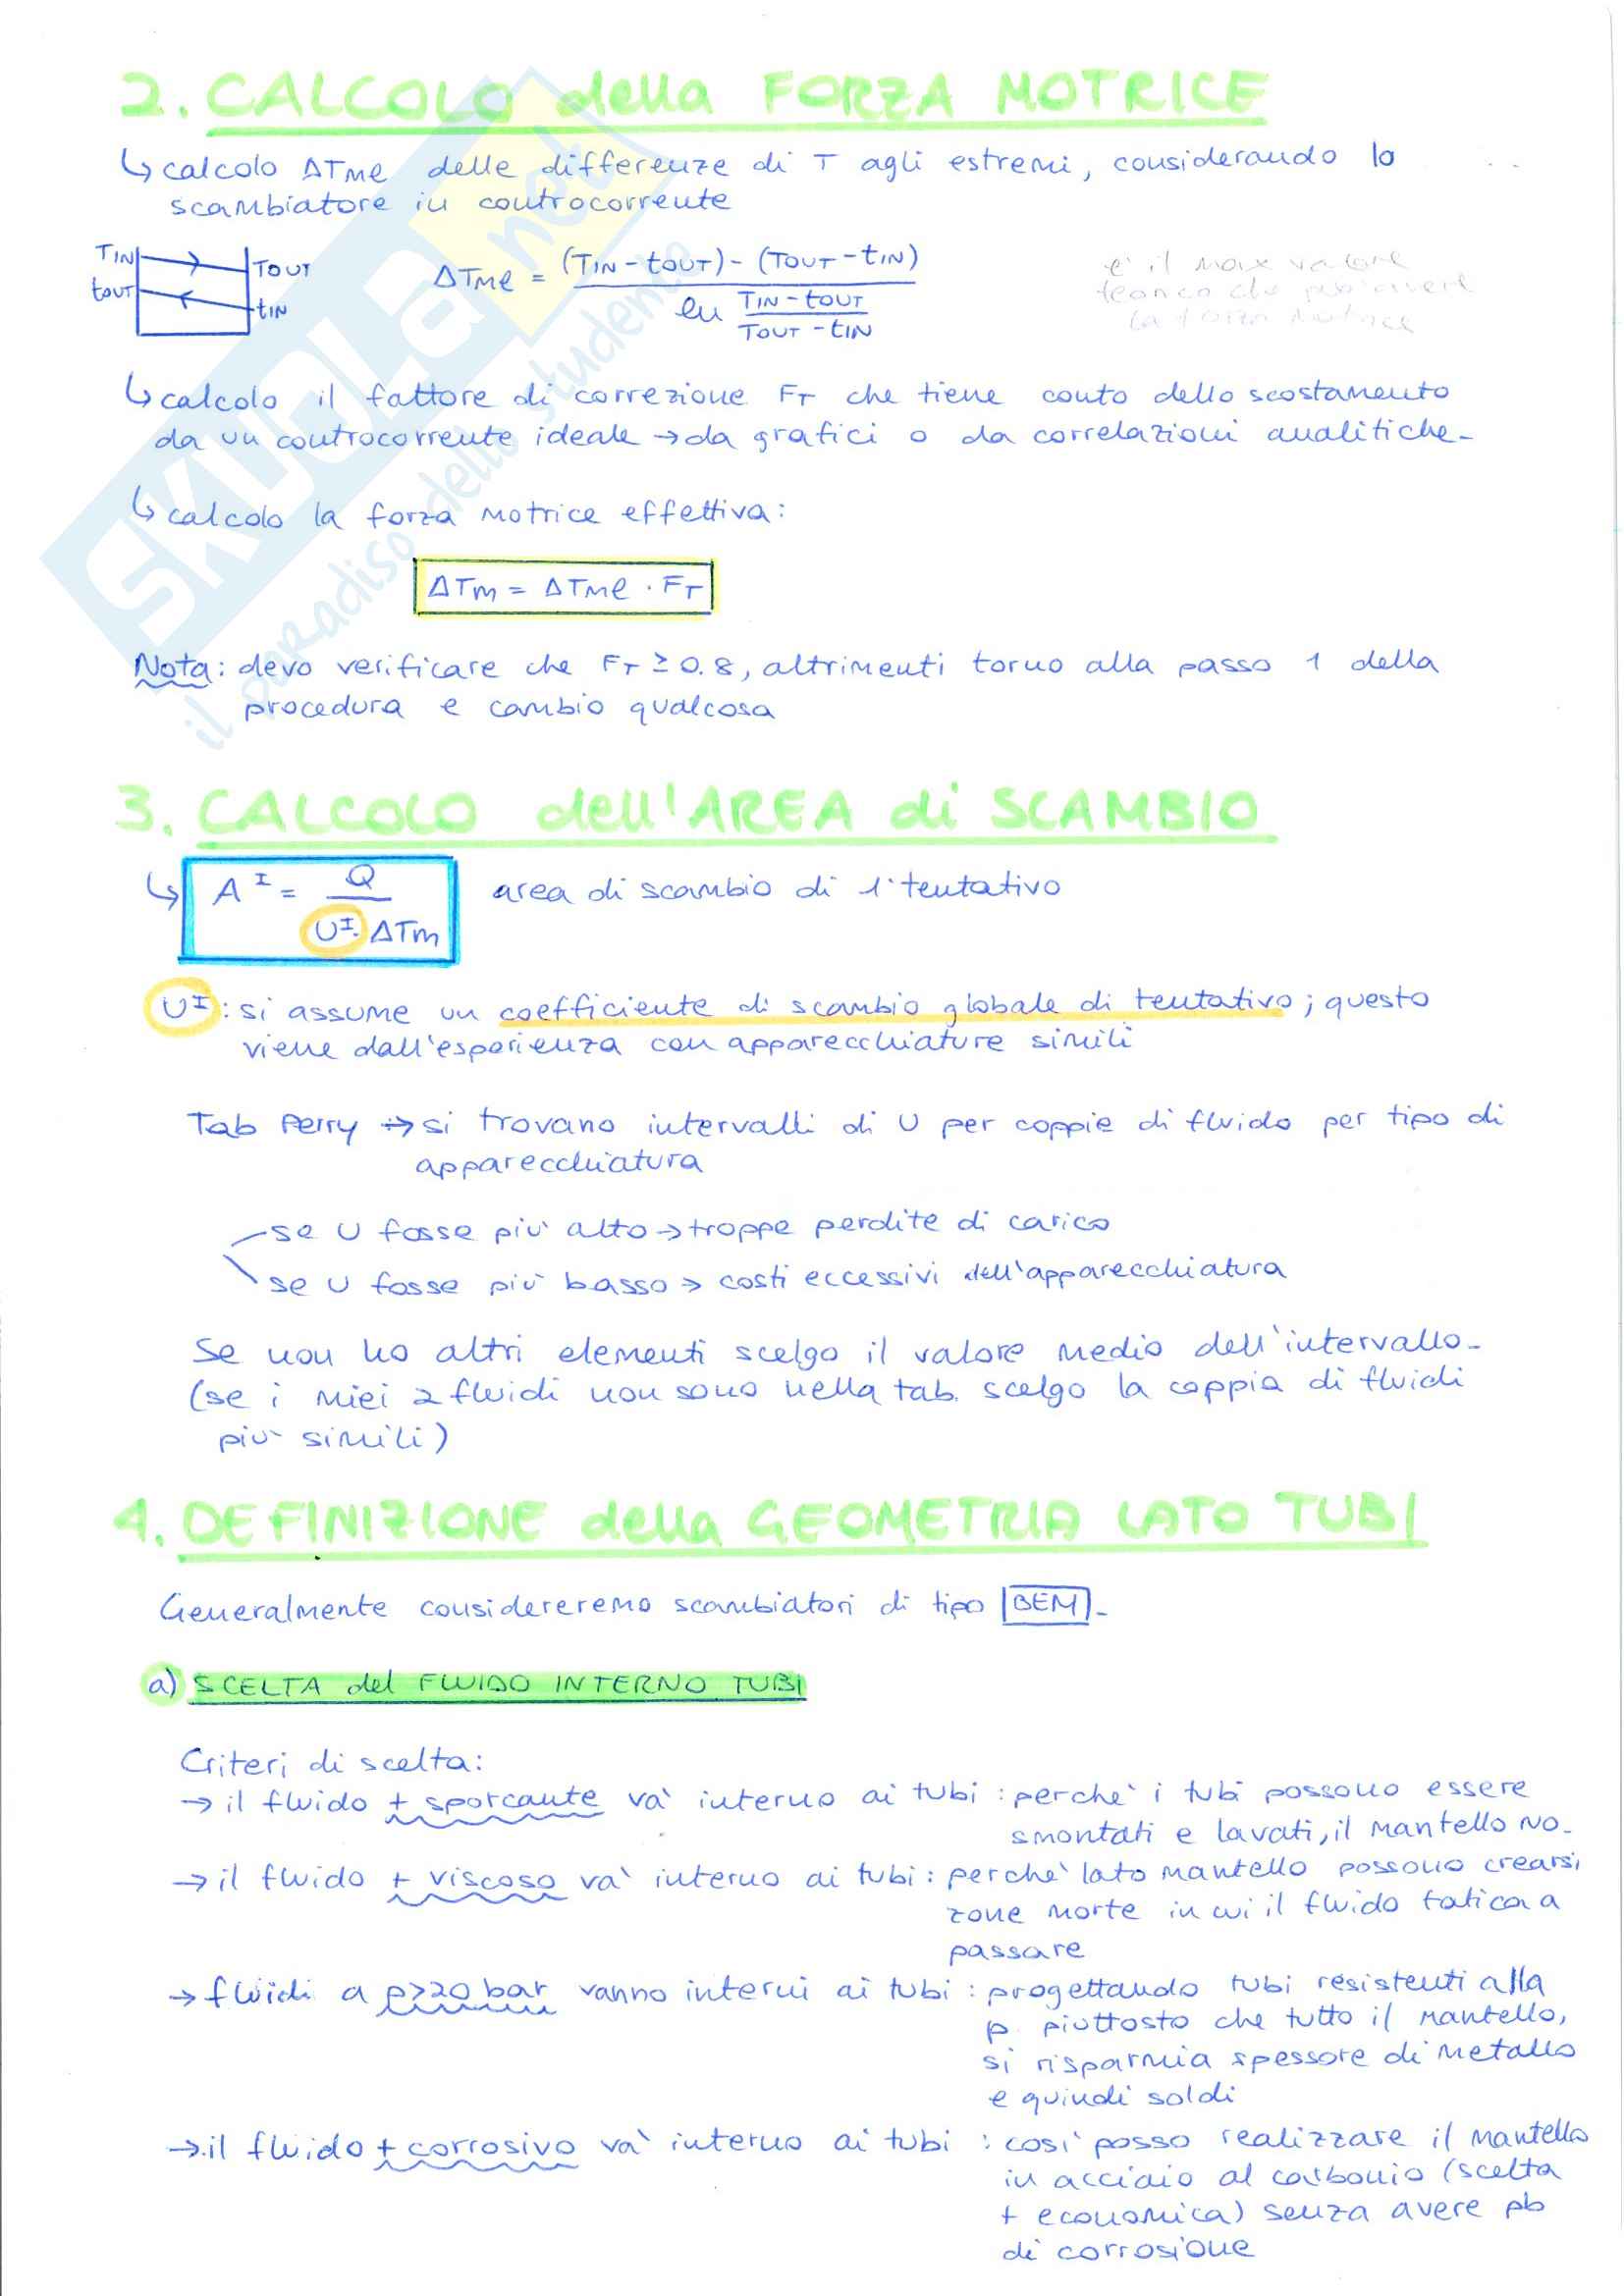 2. CALCOLO della FORZA MOTRICE
↳ calcolo ΔTme delle differenze di T agli estremi, considerando lo
scambiatore in controcorrente
TIN TOUT
tOUT tIN
ΔTme = (TIN - tOUT) - (TOUT - tIN) / ln (TIN - tOUT / TOUT - tIN)
e' il max valore
teorico che può avere
la forza motrice
↳ calcolo il fattore di correzione FT che tiene conto dello scostamento
da un controcorrente ideale → da grafici o da correlazioni analitiche.
↳ calcolo la forza motrice effettiva:
ΔTm = ΔTme · FT
Nota: devo verificare che FT ≥ 0.8, altrimenti torno alla passo 1 della
procedura e cambio qualcosa
3. CALCOLO dell'AREA di SCAMBIO
↳ A^I = Q / U^I · ΔTm area di scambio di 1° tentativo
U^I: si assume un coefficiente di scambio globale di tentativo; questo
viene dall'esperienza con apparecchiature simili
Tab Perry → si trovano intervalli di U per coppie di fluido per tipo di
apparecchiatura
se U fosse più alto → troppe perdite di carico
se U fosse più basso → costi eccessivi dell'apparecchiatura
Se non ho altri elementi scelgo il valore medio dell'intervallo.
(se i miei 2 fluidi non sono nella tab. scelgo la coppia di fluidi
più simili)
4. DEFINIZIONE della GEOMETRIA LATO TUBI
Generalmente considereremo scambiatori di tipo BEM.
a) SCELTA del FLUIDO INTERNO TUBI
Criteri di scelta:
→ il fluido + sporcante va' interno ai tubi : perche' i tubi possono essere
smontati e lavati, il mantello no.
→ il fluido + viscoso va' interno ai tubi : perche' lato mantello possono crearsi
zone morte in cui il fluido fatica a
passare
→ fluidi a p>20 bar vanno interni ai tubi : progettando tubi resistenti alla
p. piuttosto che tutto il mantello,
si risparmia spessore di metallo
e quindi soldi
→ il fluido + corrosivo va' interno ai tubi : cosi' posso realizzare il mantello
in acciaio al carbonio (scelta
+ economica) senza avere pb
di corrosione
SKUOLA.net
il paradiso dello studente